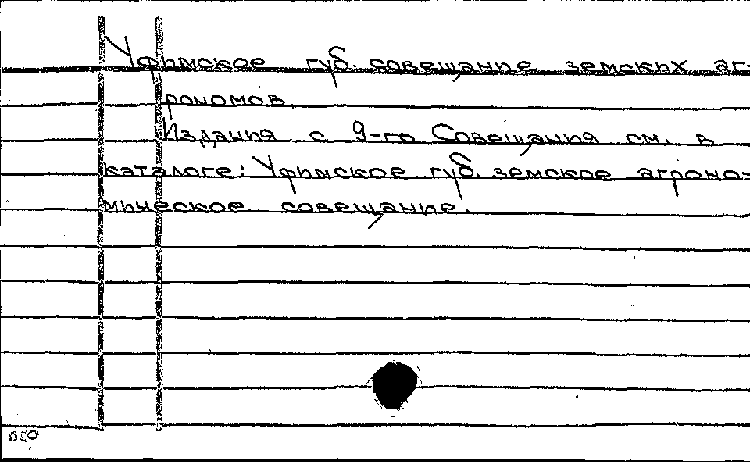 Уфимское губ. совещание земских аг-
рономов.
Издания с 9-го Совещания см. в
каталоге: Уфимское губ. земское агроно-
мическое совещание.